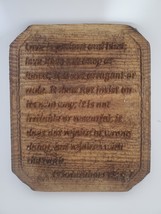 Love is patient and kind;
love is not jealous or
boast; it is not arrogant or
rude. It does not insist on
its own way; it is not
irritable or resentful; it
does not rejoice in wrong
doing, but rejoices with
the truth.
1 Corinthians 13:4-